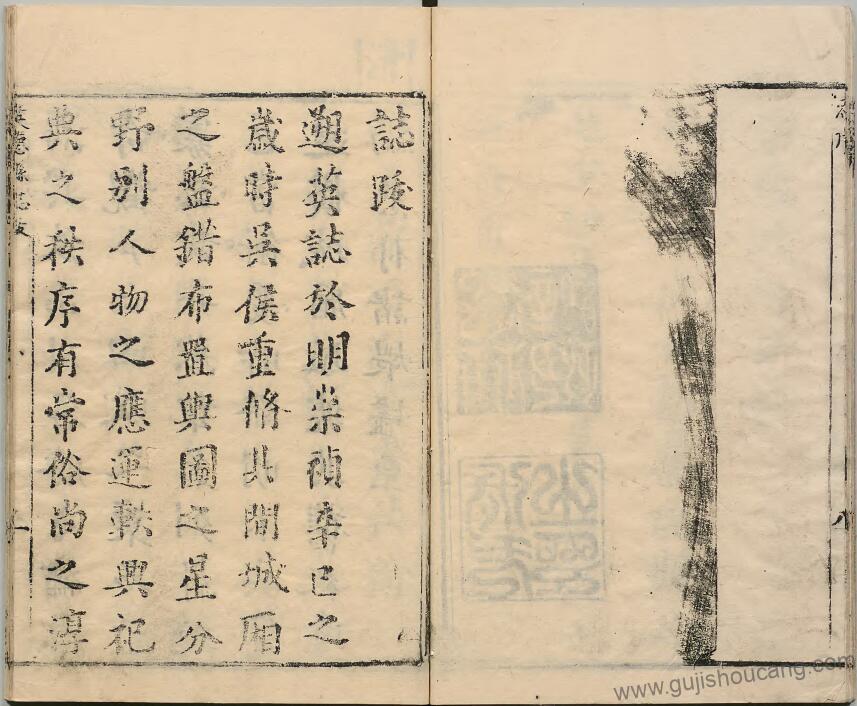 誌跋
遡英誌於明崇禎辛巳之
歲時吳侯重脩其間城廂
之盤錯布置輿圖之星分
野別人物之應運軼興祀
典之秩序有常俗尚之淳
英德縣志跋
www.gujishoucang.com